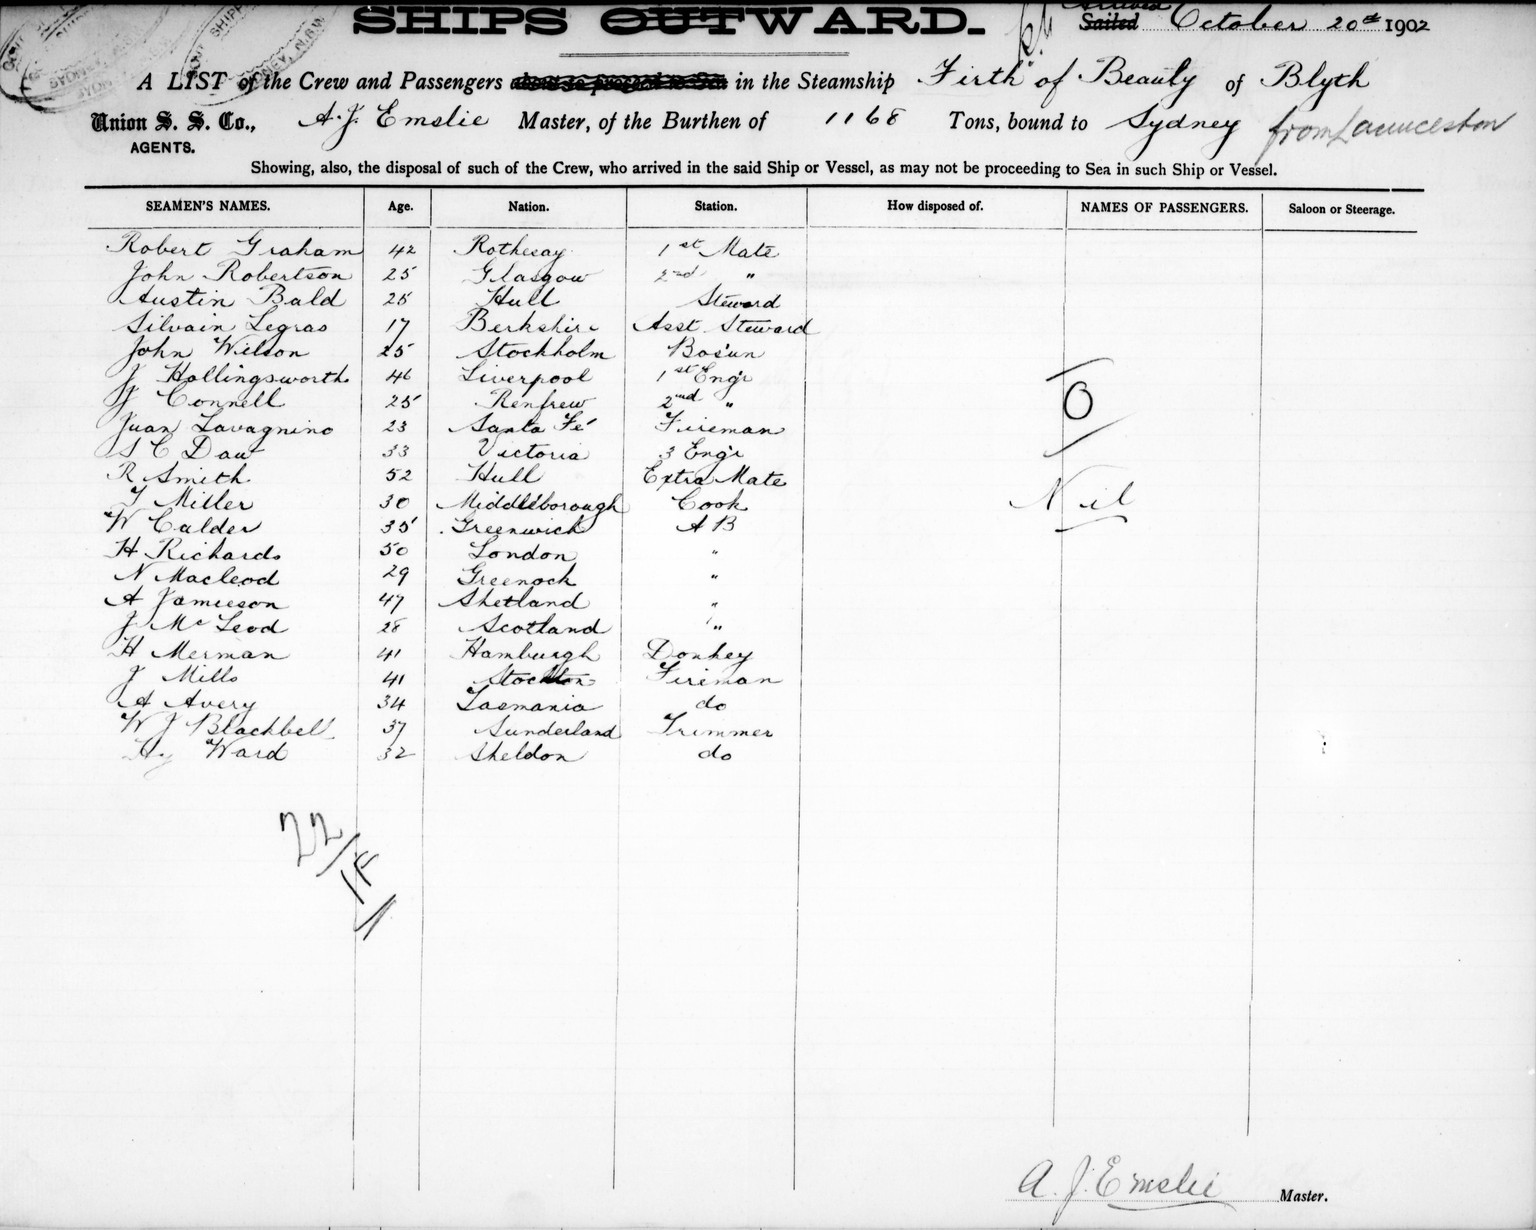 SHIPS OUTWARD. Arrived Sailed October 20th 1902
A LIST of the Crew and Passengers in the Steamship Firth of Beauly of Blyth
Union S. S. Co., A. J. Emslie Master, of the Burthen of 1168 Tons, bound to Sydney from Launceston
AGENTS.
Showing, also, the disposal of such of the Crew, who arrived in the said Ship or Vessel, as may not be proceeding to Sea in such Ship or Vessel.
SEAMEN'S NAMES. Age. Nation. Station. How disposed of. NAMES OF PASSENGERS. Saloon or Steerage.
Robert Graham 42 Rothesay 1st Mate
John Robertson 25 Glasgow 2nd "
Austin Bald 25 Hull Steward
Silvain Legras 17 Berkshire Asst Steward
John Wilson 25 Stockholm Bos'un
J Hollingsworth 46 Liverpool 1st Engr
J Connell 25 Renfrew 2nd "
O
Juan Lavagnino 23 Santa Fé Fireman
S C Daw 33 Victoria 3 Engr
R Smith 52 Hull Extra Mate
T Miller 30 Middleborough Cook
Nil
W Calder 35 Greenwich A B
H Richards 50 London "
N Macleod 29 Greenock "
A Jamieson 47 Shetland "
J McLeod 28 Scotland "
H Merman 41 Hamburgh Donkey
J Mills 41 Stockton Fireman
A Avery 34 Tasmania do
W J Blackbell 37 Sunderland Trimmer
Hy Ward 32 Sheldon do
22
1F
A. J. Emslie Master.